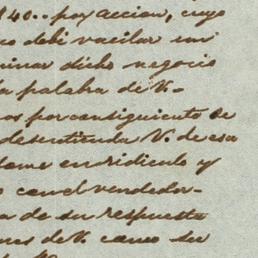 140.. por accion, cuyo
no debi vacilar en
minar dicho negocio
la palabra de V.-
os por consiguiente se
desentienda V. de esa
dome en ridiculo y
o con el vendedor-
a de su respuesta
nes de V. como su